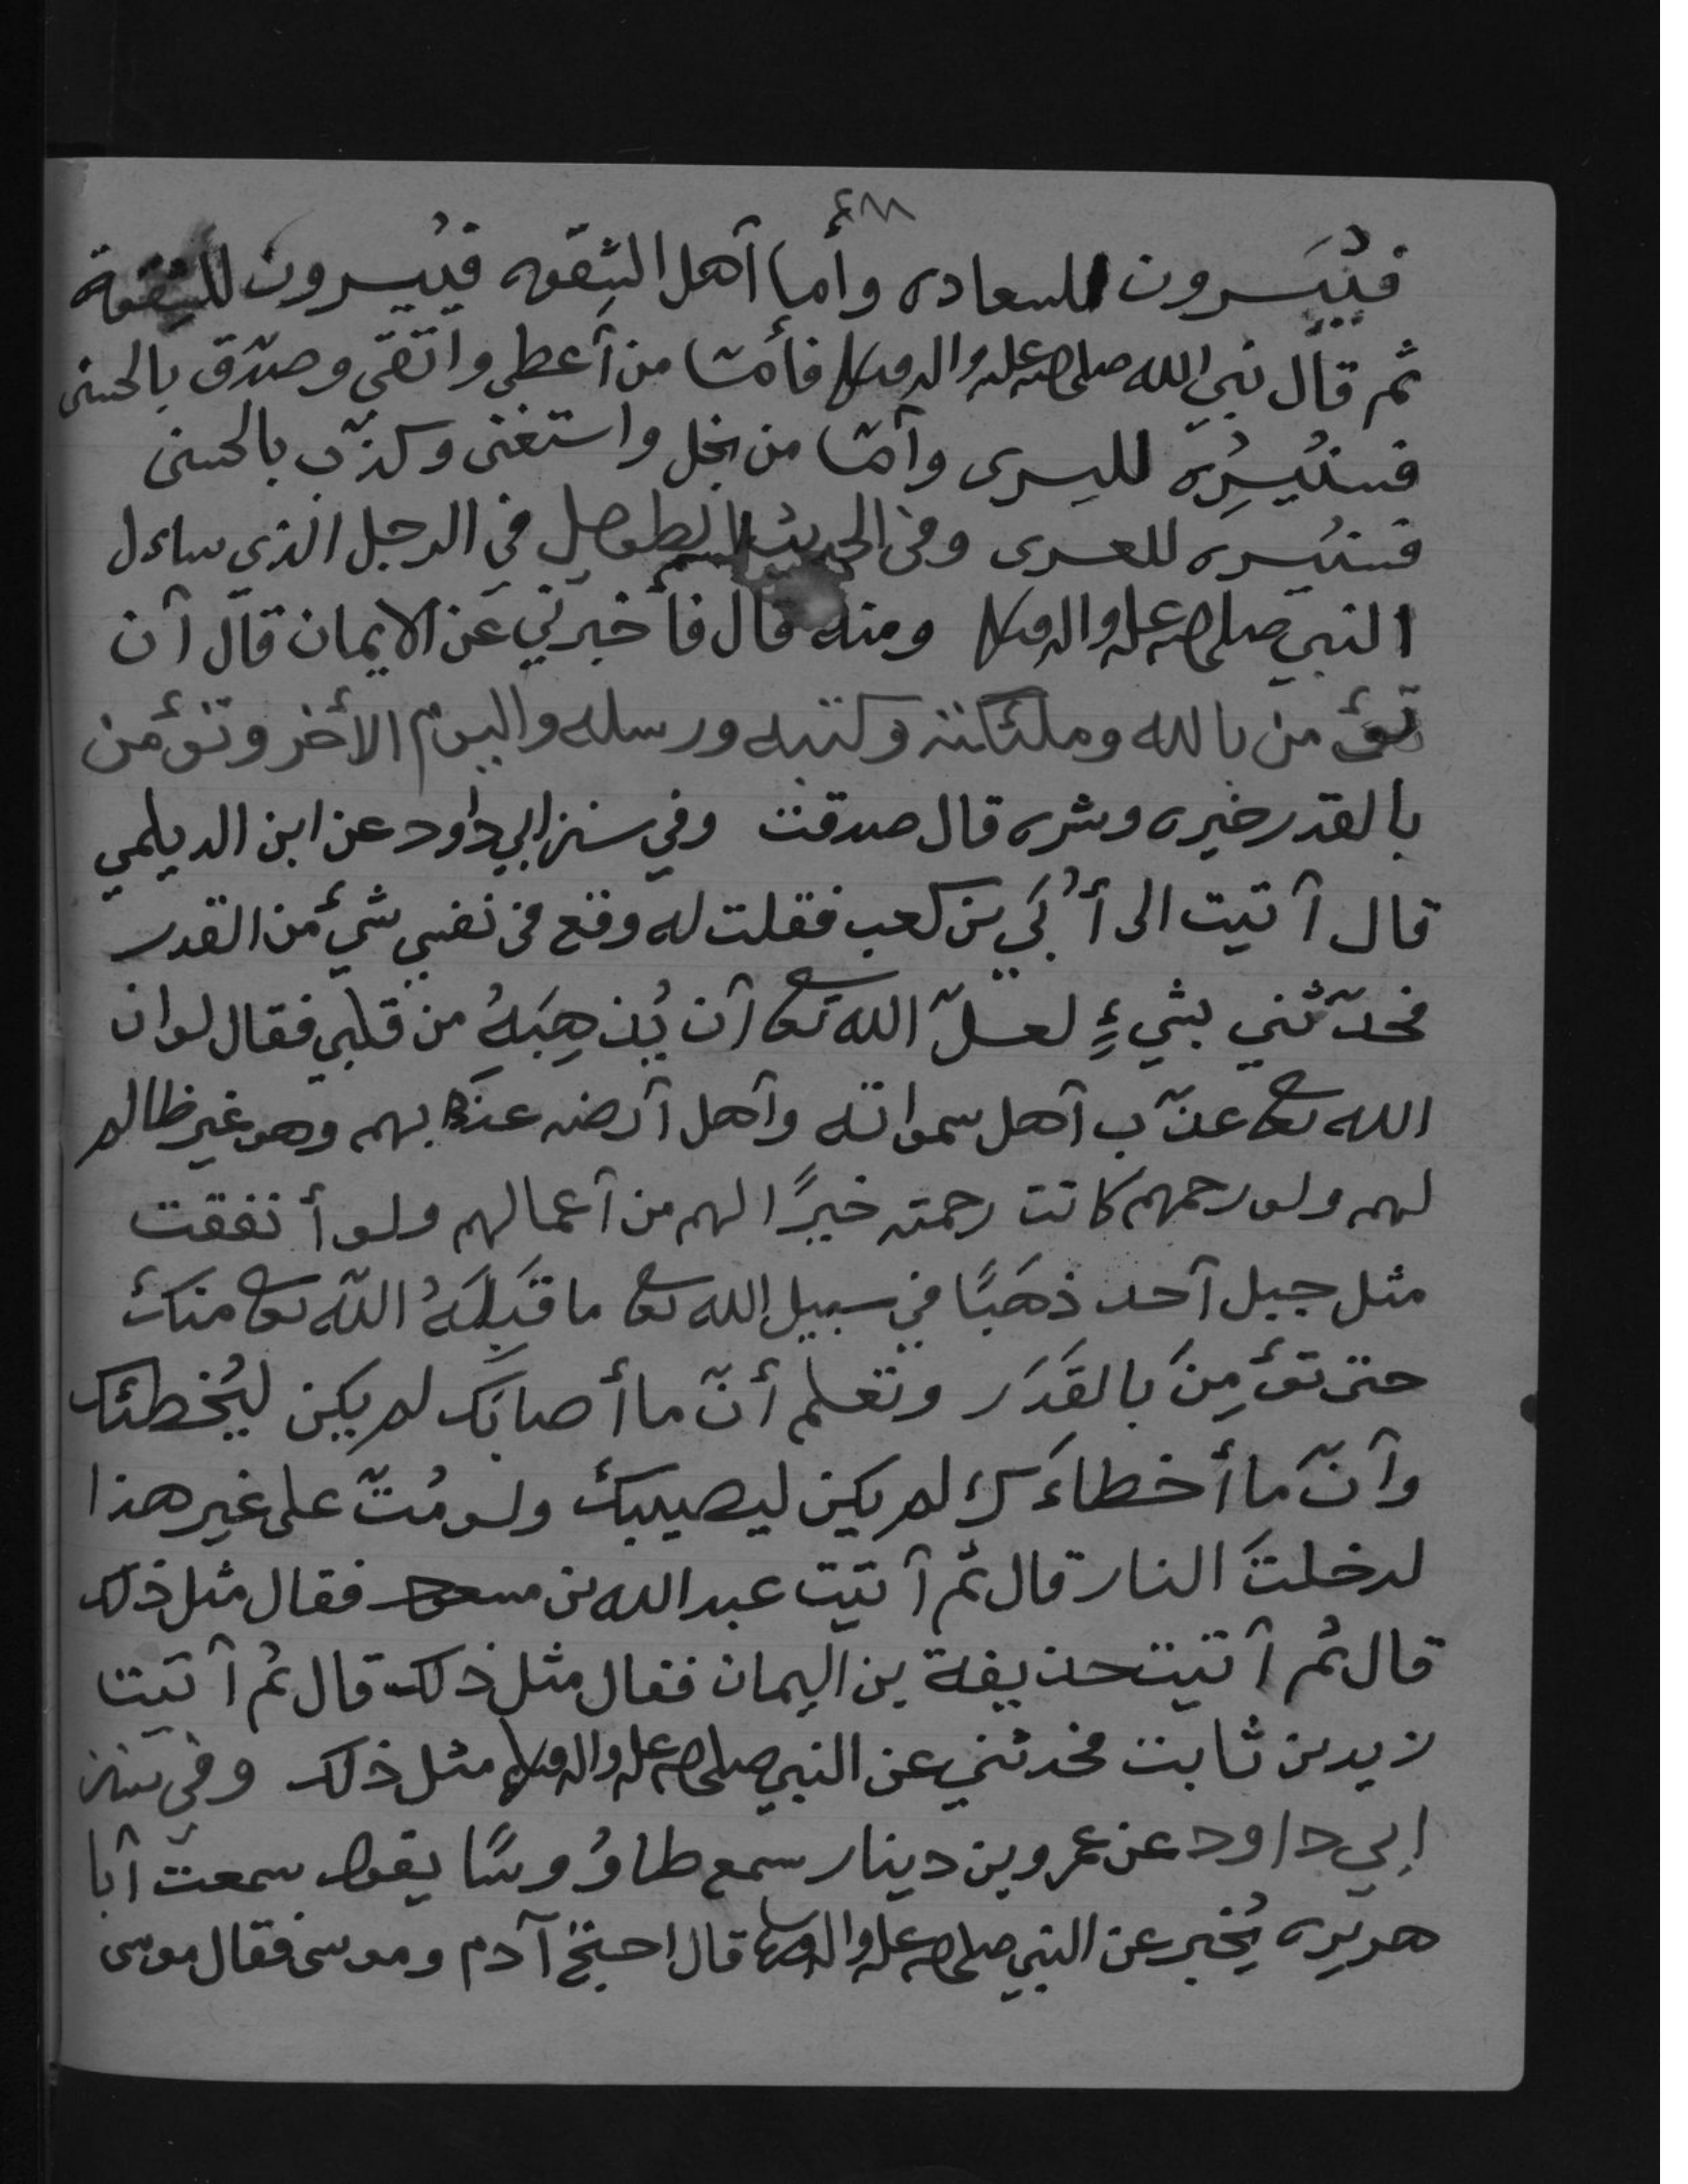 ٤٨٨
فيُيَسرون للسعاده وأما أهل الشِقوه فيُيسرون للشِقوة
ثم قال نبي الله صلى الله عليه واله وسلم فأمّا من أعطى واتقى وصدّق بالحسنى
فسنُيسِرُه لليسرى وأمّا من بخل واستغنى وكذّب بالحسنى
فسنُيسره للعسرى وفي الحديث الطويل في الرجل الذي ساءل
النبي صلى الله عليه واله وسلم ومنه قال فأخبرني عن الايمان قال أن
تؤمن بالله وملئكته وكتبه ورسله واليوم الأخر وتؤمن
بالقدر خيره وشره قال صدقت وفي سنن ابي داود عن ابن الديلمي
قال أتيت الى أُبَي بن كعب فقلت له وقع في نفسي شيء من القدر
فحدّثني بشيءٍ لعلّ الله تعالى أن يُذهِبَهُ من قلبي فقال لو ان
الله تعالى عذّب أهل سمواته وأهل أرضه عذبهم وهو غير ظالم
لهم ولو رحمهم كانت رحمته خيرًا لهم من أعمالهم ولو أنفقت
مثل جبل أحد ذهَبًا في سبيل الله تعالى ما قَبِلَهُ اللّه تعالى منك
حتى تؤمِنَ بالقَدَر وتعلم أنّ ما أصابَك لم يكن ليُخطئك
وأنّ ما أخطاءَك لم يكن ليصيبك ولو مُتّ على غير هذا
لدخلتَ النار قال ثم أتيت عبد الله بن مسعود فقال مثل ذلك
قال ثم أتيت حذيفة بن اليمان فقال مثل ذلك قال ثم أتيت
زيد بن ثابت فحدثني عن النبي صلى الله عليه واله وسلم مثل ذلك وفي سنن
ابي داود عن عمرو بن دينار سمع طاوُوسًا يقول سمعت أبا
هريره يُخبر عن النبي صلى الله عليه واله وسلم قال احتج آدم وموسى فقال موسى